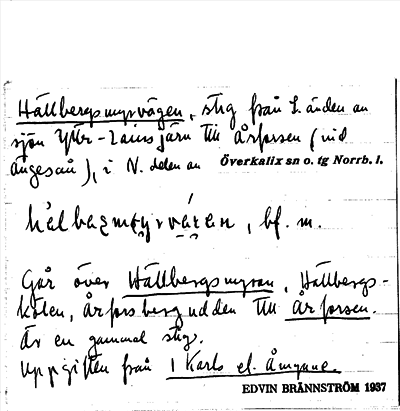 Hällbergsmyrvägen, stig från S. änden av
sjön Yttre-Lainsjärv till Årforsen (vid
Ängesån), i N. delen av Överkalix sn o. tg Norrb. l.
bf. m.
Går över Hällbergsmyran, Hällbergs-
kölen, Årforsbergudden till Årforsen.
Är en gammal stig.
Uppgiften från I Karls el. Åmynne.
EDVIN BRÄNNSTRÖM 1937